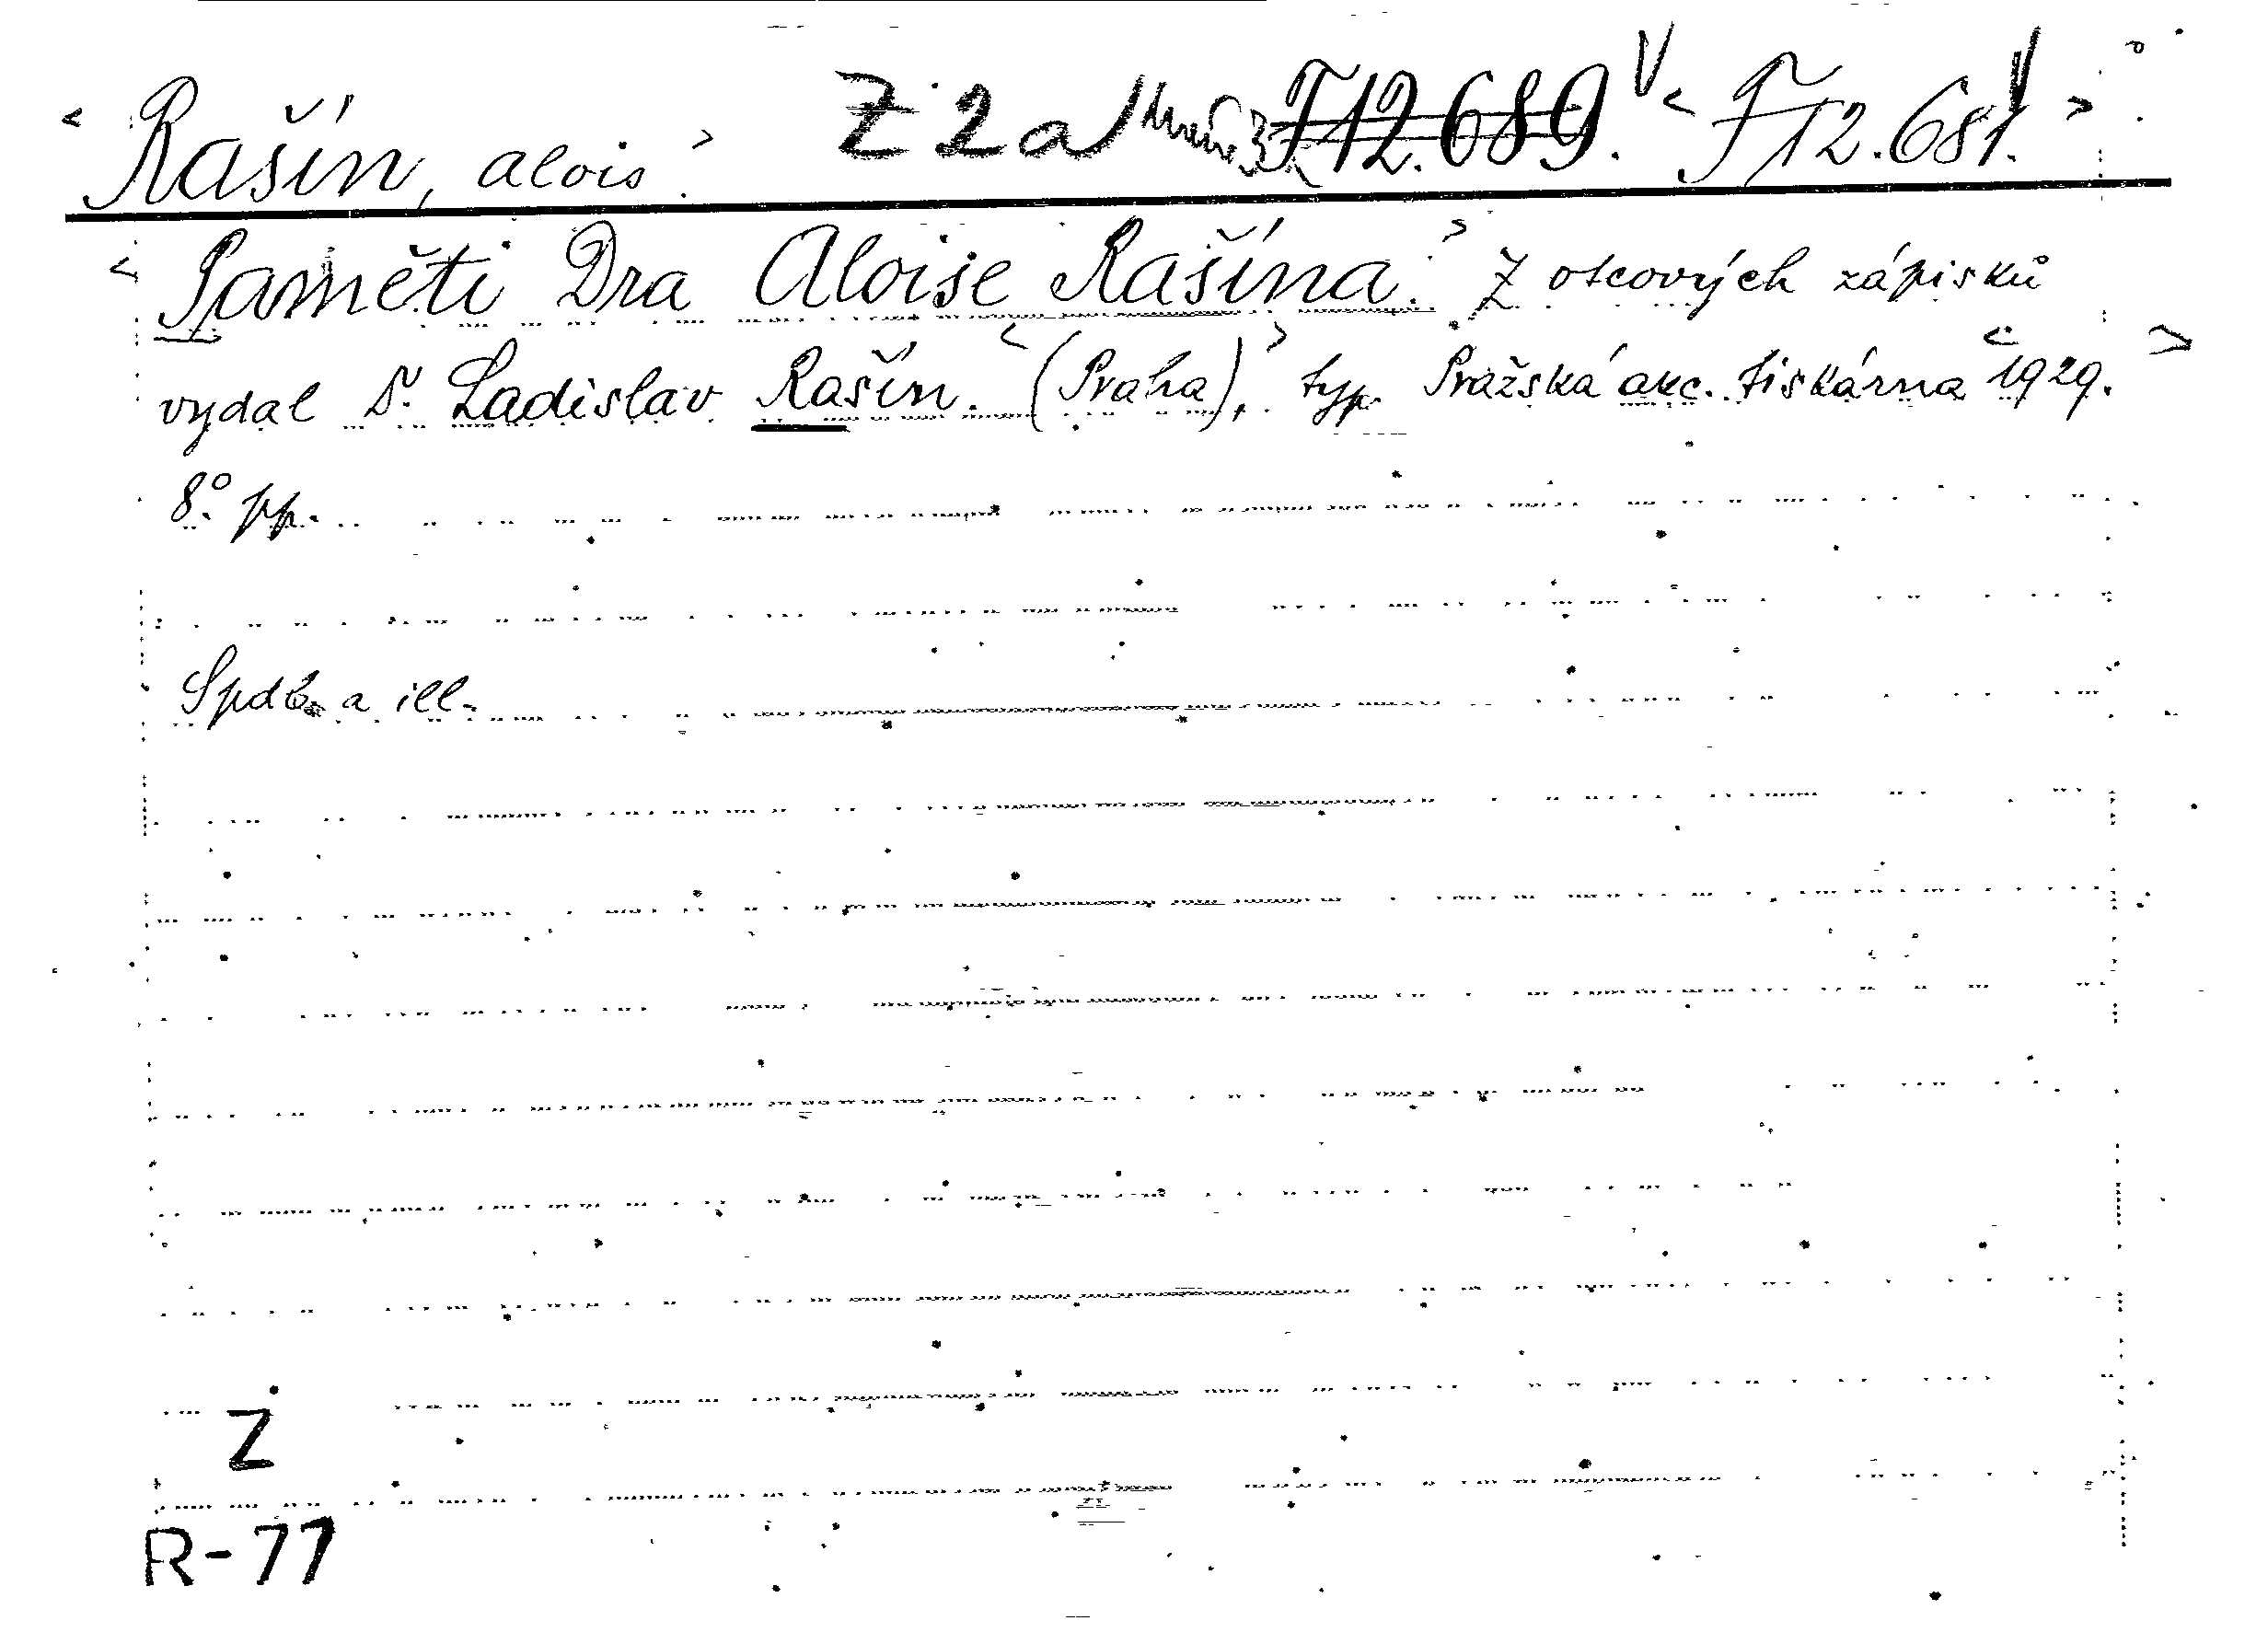 < Rašín, Alois. > Z 2 a F 12.689. < F 12.681. >
< Paměti Dra Aloise Rašína. > Z otcových zápisků
vydal Dr. Ladislav Rašín. < (Praha), > typ. Pražská akc. tiskárna < 1929. >
8°. pp.
Spdb. a ill.
Z
R-77